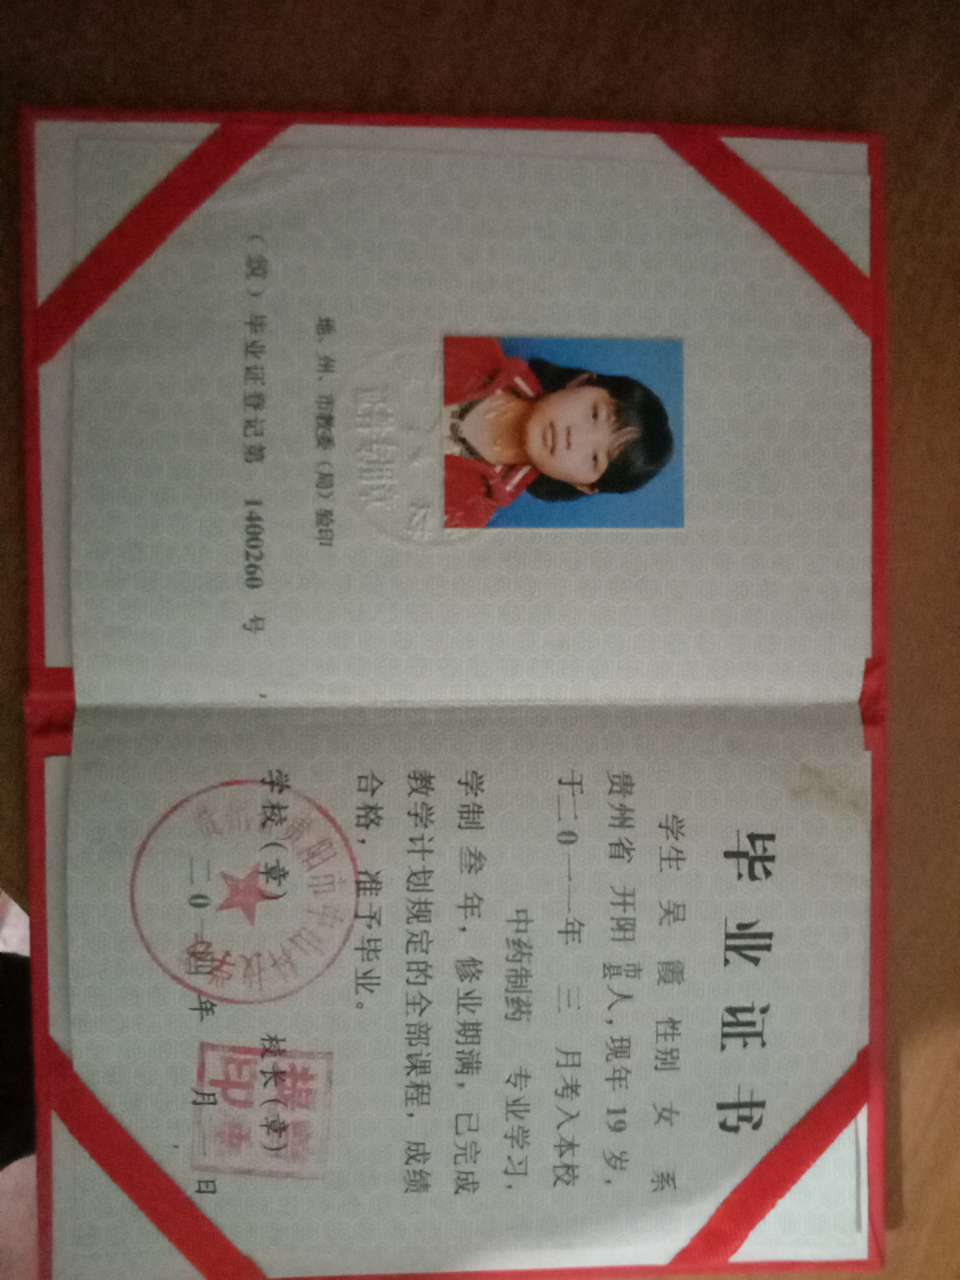 地、州、市教委(局)验印
(筑)毕业证登记第 1400260 号
毕业证书
学生 吴 霞 性别 女 系
贵州省 开阳 市县人,现年 19 岁,
于二0一一年 三 月考入本校
中药制药 专业学习,
学制 叁 年,修业期满,已完成
教学计划规定的全部课程,成绩
合格,准予毕业。
学校(章) 校长(章)
二0一四年 月一日